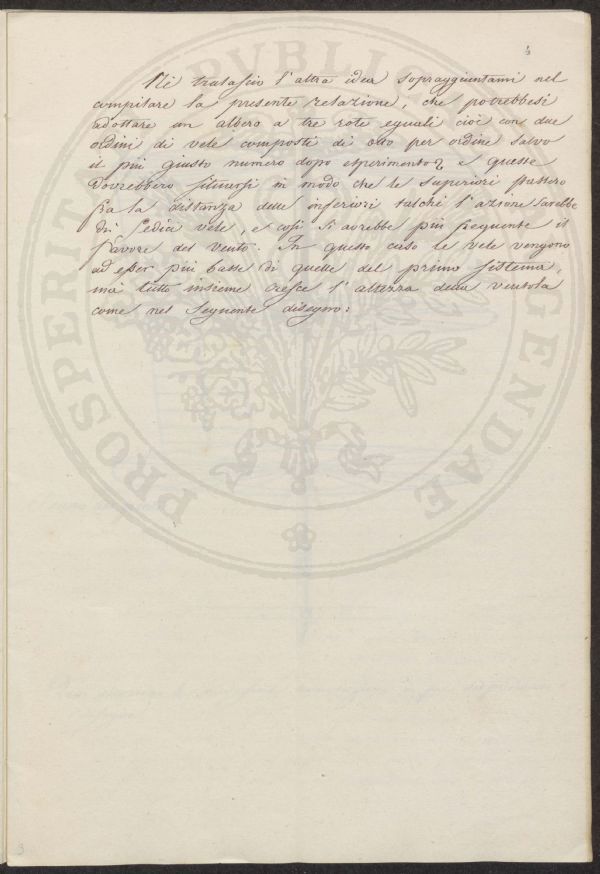 4
Nè tralascio l'altra idea sopraggiuntami nel
compilare la presente relazione, che potrebbesi
adottare un albero a tre rote eguali cioè con due
ordini di vele composti di otto per ordine salvo
il più giusto numero dopo esperimento e queste
dovrebbero situarsi in modo che le superiori stassero
fra la distanza delle inferiori talchè l'azione sarebbe
di sedici vele, e così si avrebbe più frequente il
favore del vento. In questo caso le vele vengono
ad esser più basse di quelle del primo sistema,
mà tutto insieme cresce l'altezza della ventola
come nel seguente disegno:
PROSPERITATI PUBLICAE AUGENDAE
3